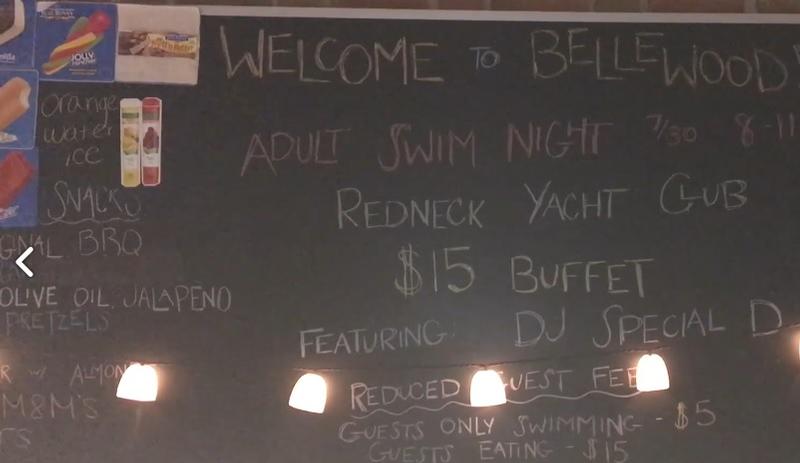 JOLLY
orange
water
ice
SNACKS
GNAL BBQ
OLIVE OIL JALAPENO
PRETZELS
R w/ ALMON
M&M'S
WELCOME TO BELLEWOOD
ADULT SWIM NIGHT 7/30 8-11
REDNECK YACHT CLUB
$15 BUFFET
FEATURING: DJ SPECIAL D
REDUCED GUEST FEE
GUESTS ONLY SWIMMING - $5
GUESTS EATING - $15